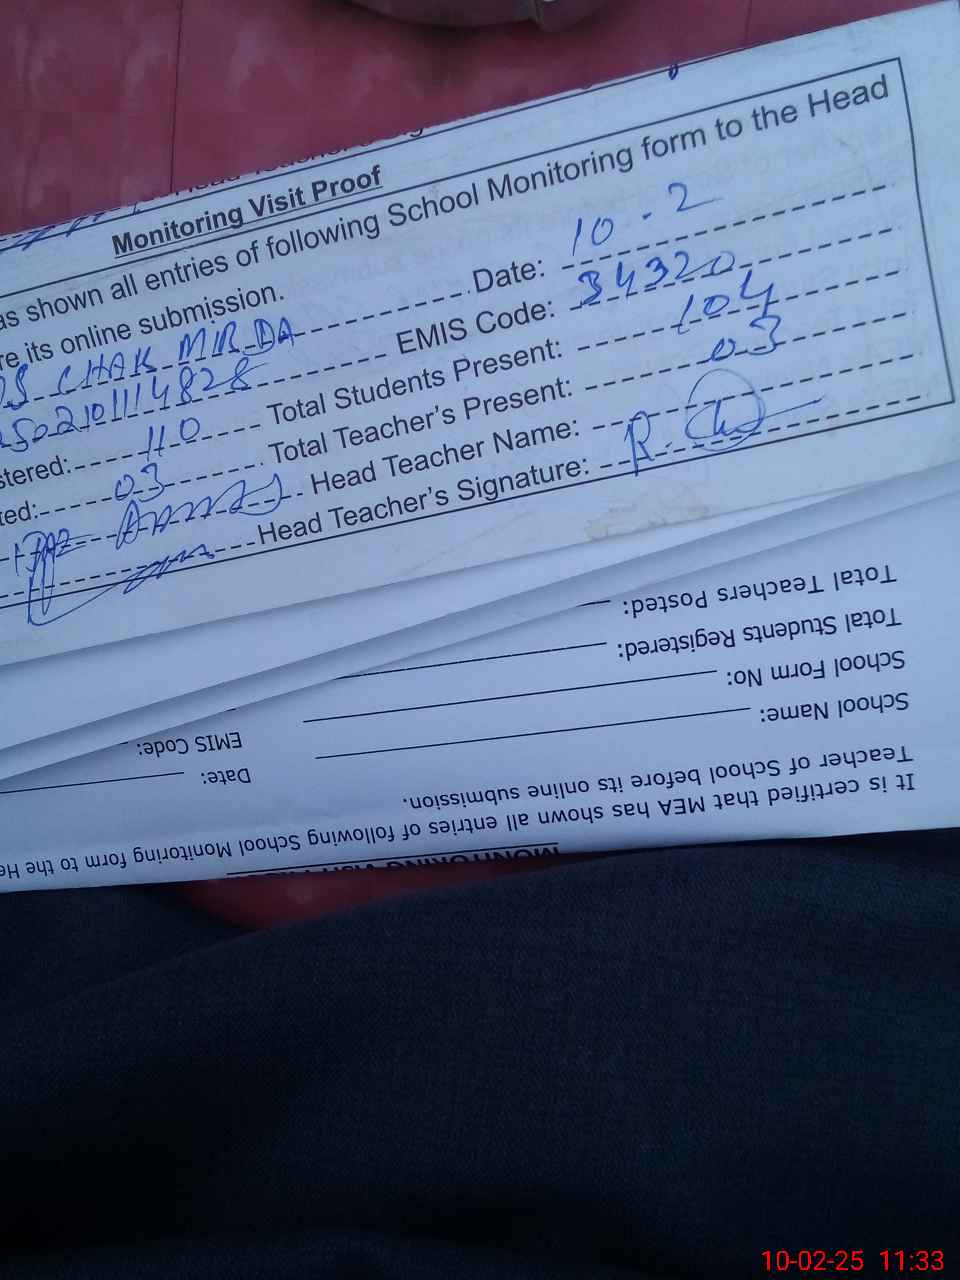 Monitoring Visit Proof
as shown all entries of following School Monitoring form to the Head
re its online submission.
Date: 10.2
S CHAK MIRDA EMIS Code: 34320
2502101114828 Total Students Present: 104
stered: 110 Total Teacher's Present: 03
ted: 03 Head Teacher Name:
Head Teacher's Signature:
MONITORING VISIT
It is certified that MEA has shown all entries of following School Monitoring form to the He
Teacher of School before its online submission.
School Name: Date:
School Form No: EMIS Code:
Total Students Registered:
Total Teachers Posted:
10-02-25 11:33